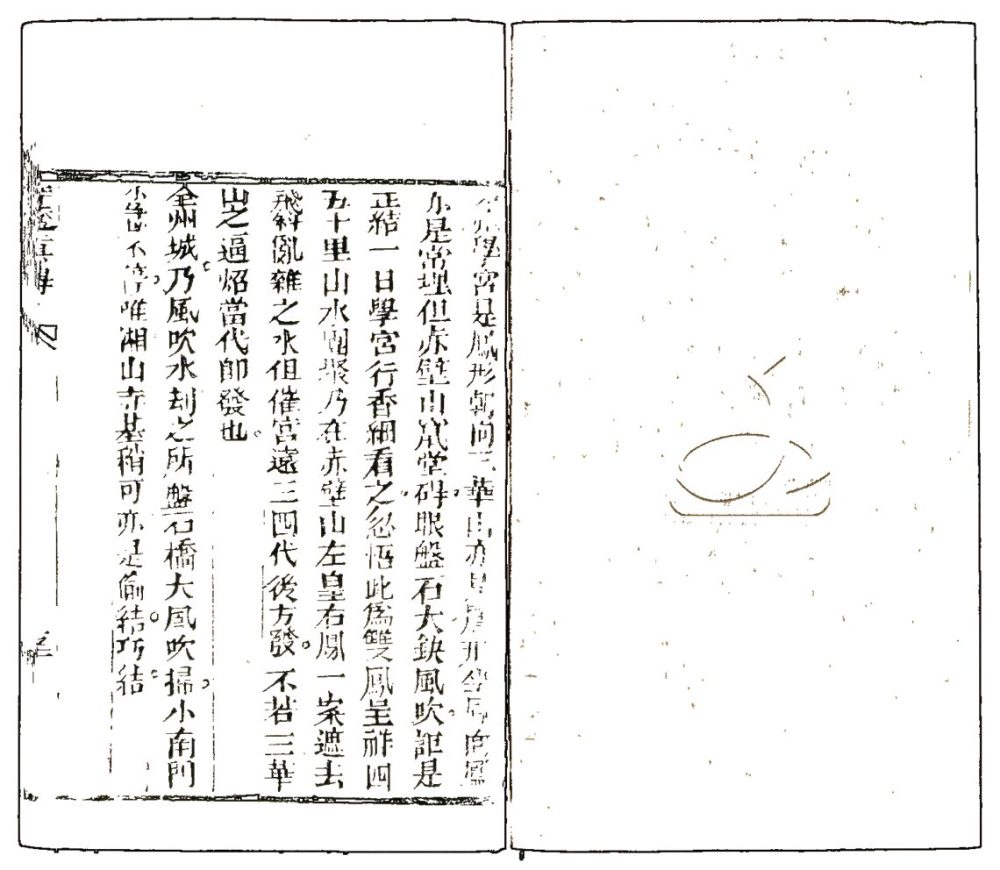 學宮是鳳形朝向三華山亦
亦是常理但赤壁山冗堂碍眼盤石大缺風吹詎是
正結一日學宮行香細看之忽悟此為雙鳳呈祥四
五十里山水團聚乃在赤壁山左皇右鳳一案遮去
飛斜亂雜之水但催官遠三四代後方發不若三華
山之逼炤當代即發也
全州城乃風吹水刦之所盤石橋大風吹掃小南門
不停唯湘山寺基稍可亦是偷結巧結